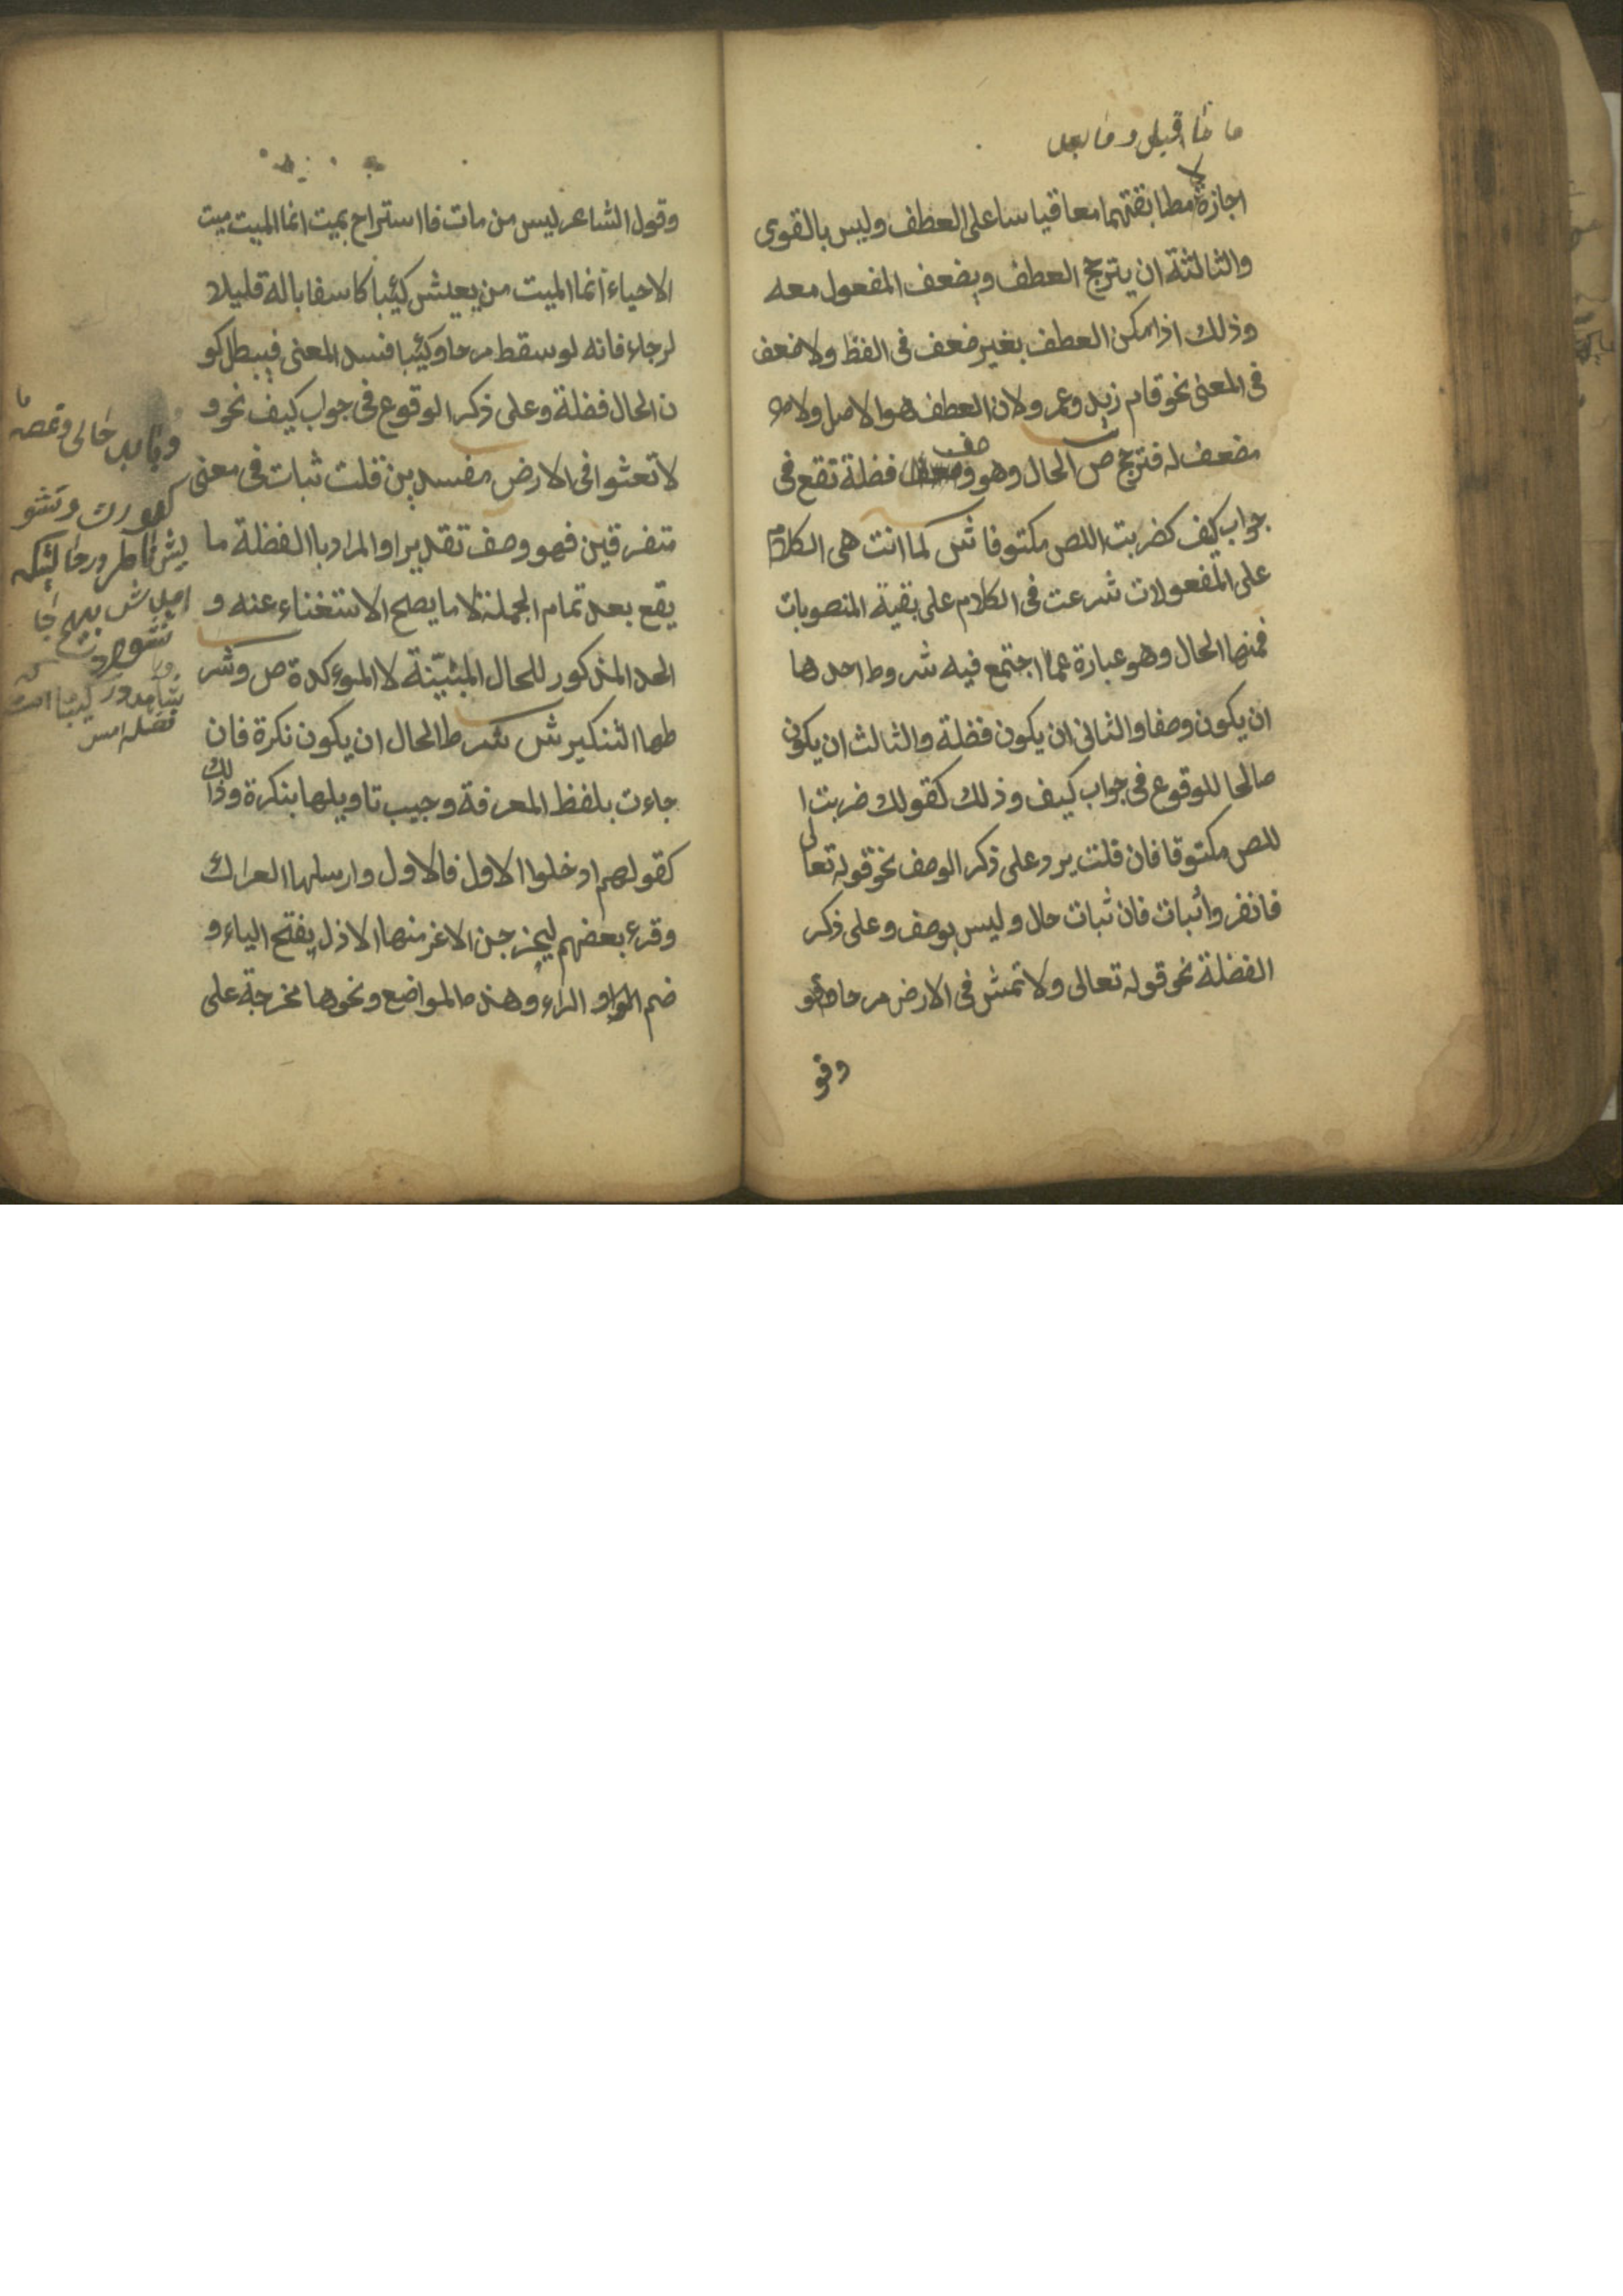 ما قبلي وما بعد
اجازة مطابقتهما معا قياسا على العطف وليس بالقوى
والثالثة ان يترجح العطف ويضعف المفعول معه
وذلك اذا امكن العطف بغير ضعف فى الفظ ولا ضعف
فى المعنى نحو قام زيد وعمرو لان العطف هو الاصل ولا
مضعف له فترجح ص الحال وهو وصف فضلة تقع فى
جواب كيف كضربت اللص مكتوفا ش لما انت هى الكلام
على المفعولات شرعت فى الكلام على بقية المنصوبات
فمنها الحال وهو عبارة عما اجتمع فيه شروط احدها
ان يكون وصفا والثانى ان يكون فضلة والثالث ان يكون
صالحا للوقوع فى جواب كيف وذلك كقولك ضربت ا
للص مكتوفا فان قلت يرد على ذكر الوصف نحو قوله تعالى
فانفروا ثبات فان ثبات حال وليس بوصف وعلى ذكر
الفضلة نحو قوله تعالى ولا تمش فى الارض مرحا
وقو
وقول الشاعر ليس من مات فااستراح بميت انما الميت ميت
الاحياء انما الميت من يعيش كئيبا كاسفا باله قليلا
لرجاء فانه لو سقط مرحا وكئيبا فسد المعنى فيبطل كو
ن الحال فضلة وعلى ذكر الوقوع فى جواب كيف نحو و
لا تعثوا فى الارض مفسدين قلت ثبات فى معنى
متفرقين فهو وصف تقديرا والمراد باالفظلة ما
يقع بعد تمام الجملة لا ما يصح الاستغناء عنه و
الحد المذكور للحال المبيّنة لا الموءكدة ص وشر
طها التنكير ش شرط الحال ان يكون نكرة فان
جاءت بلفظ المعرفة وجيب تاويلها بنكرة وذالك
كقولهم ادخلوا الاول فالاول وارسلها العراك
وقرء بعضهم ليخرجن الاعز منها الاذل يفتح الياء و
ضم الراء وهذه المواضع ونحوها مخرجة على